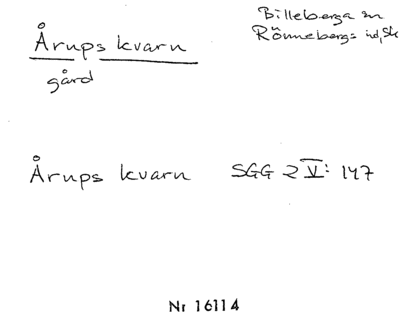 Årups kvarn
gård
Billeberga sn
Rönnebergs hd, Sk
Årups kvarn SGG 2 V: 147
Nr 16114